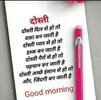 दोस्ती
दोस्ती दिल से हो तो
वफा बन जाती है
दोस्ती प्यार से हो तो
दोस्ती गैरो से हो तो
पहचान बन जाती है
दोस्ती अच्छे इंसान से हो तो
और, जिंदगी बन जाती है
Good morning